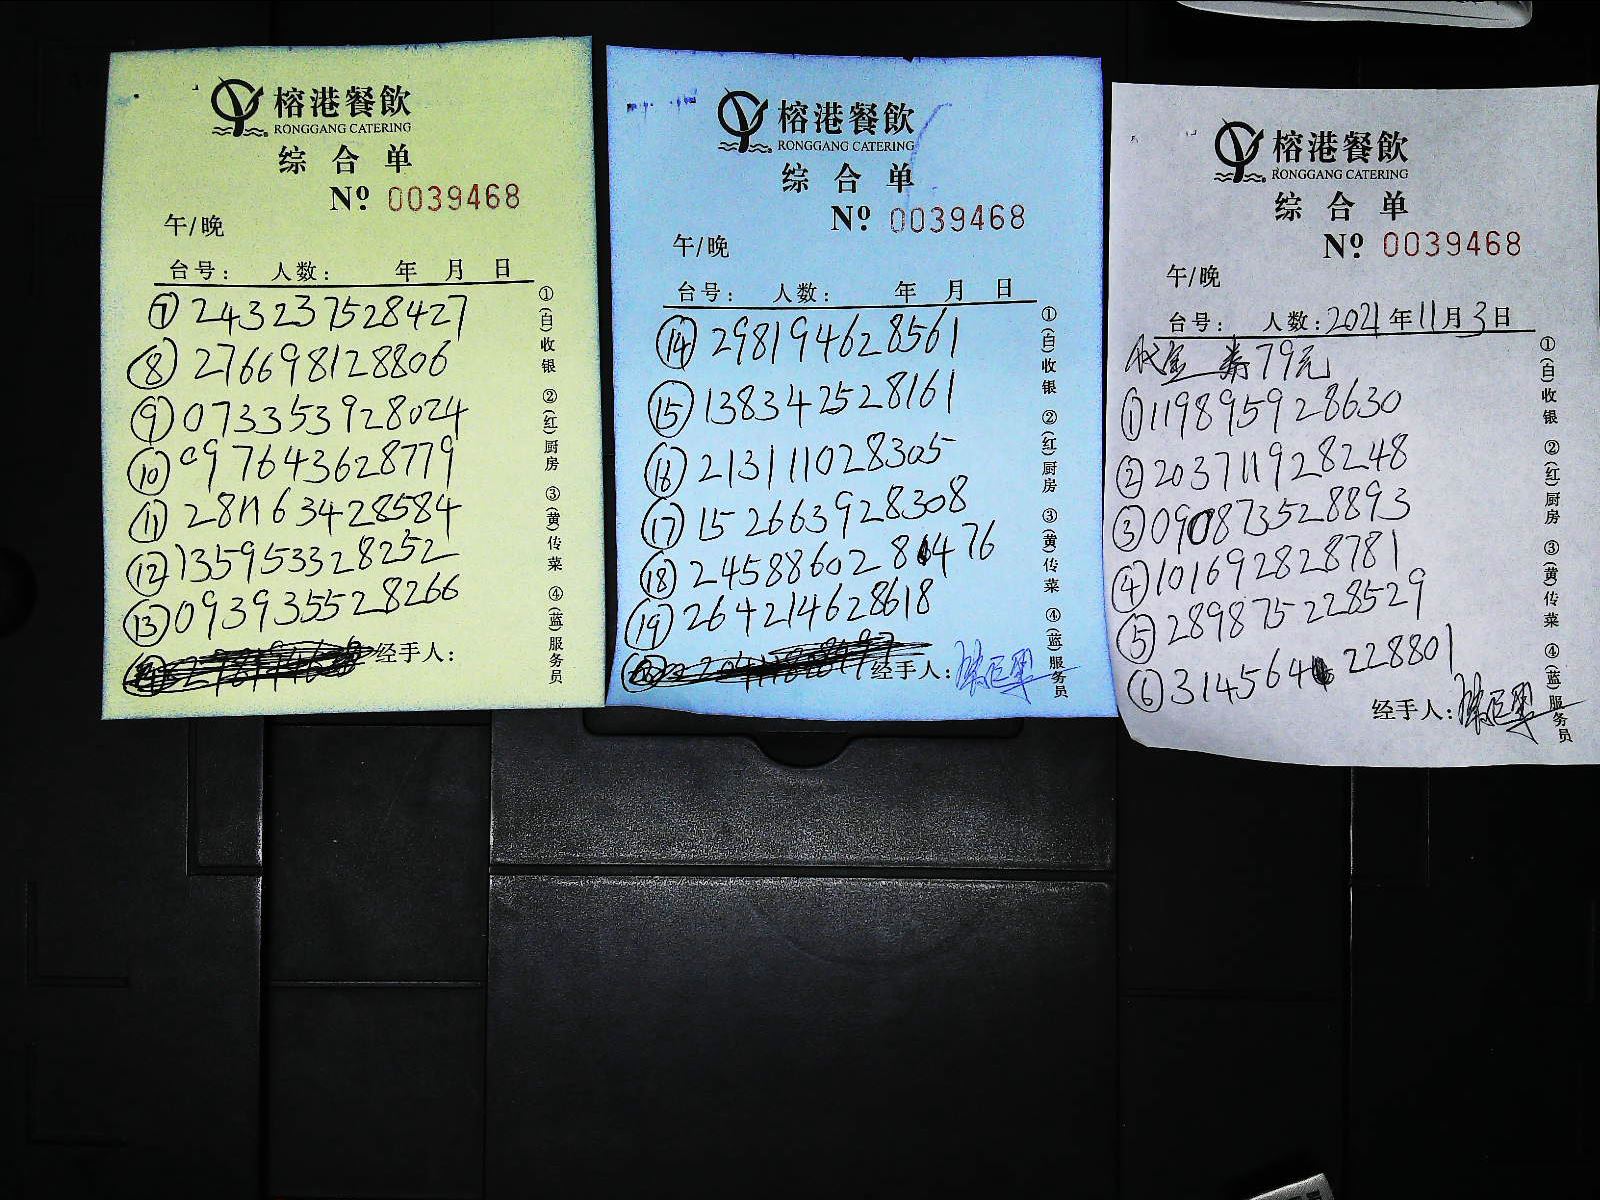 榕港餐飲
RONGGANG CATERING
综合单
Nº 0039468
午/晚
台号： 人数： 年 月 日
⑦ 243237528427
⑧ 276698128806
⑨ 073353928024
⑩ 097643628779
⑪ 281163428584
⑫ 135953328252
⑬ 093935528266
经手人：
①(白)收银 ②(红)厨房 ③(黄)传菜 ④(蓝)服务员
榕港餐飲
RONGGANG CATERING
综合单
Nº 0039468
午/晚
台号： 人数： 年 月 日
⑭ 298194628561
⑮ 138342528161
⑯ 213111028305
⑰ 152663928308
⑱ 245886028476
⑲ 264214628618
经手人：
①(白)收银 ②(红)厨房 ③(黄)传菜 ④(蓝)服务员
榕港餐飲
RONGGANG CATERING
综合单
Nº 0039468
午/晚
台号： 人数： 2021年11月3日
券79元
① 119895928630
② 203711928248
③ 090873528893
④ 101692828781
⑤ 289875228529
⑥ 314564228801
经手人：
①(白)收银 ②(红)厨房 ③(黄)传菜 ④(蓝)服务员